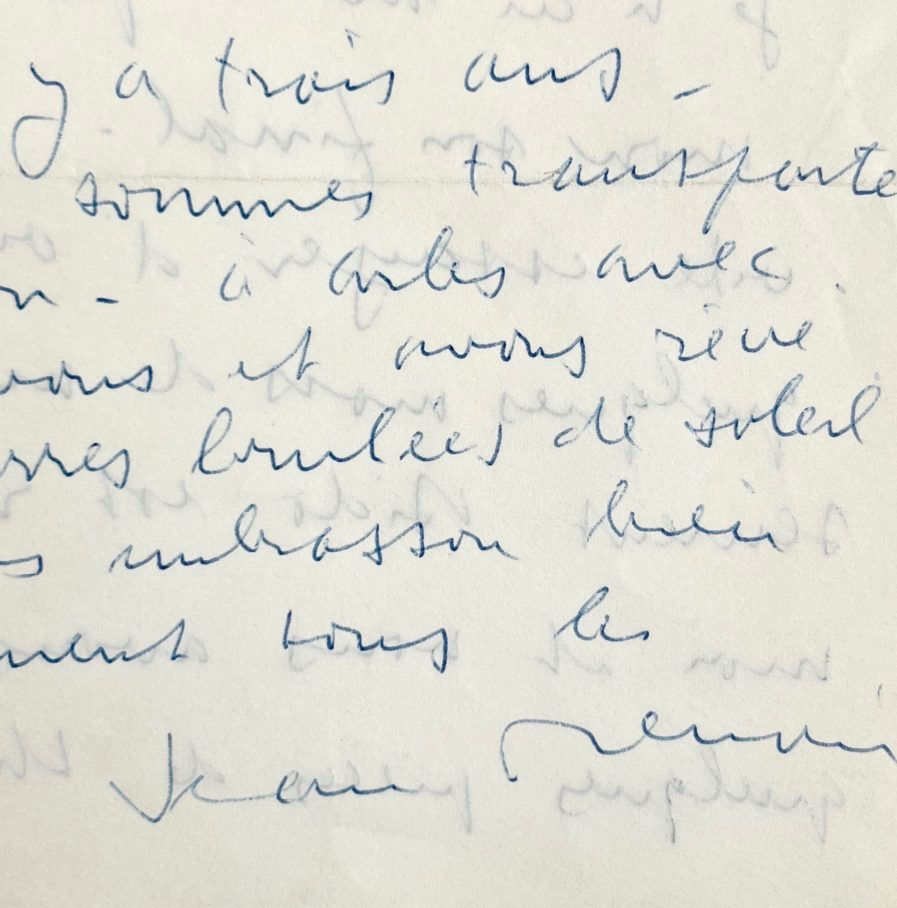 y a trois ans -
sommes transporte
- à Arles avec
vous et avons rêvé
rres brulées de soleil
s embrasson bien
ment tous les
Jean Renoir